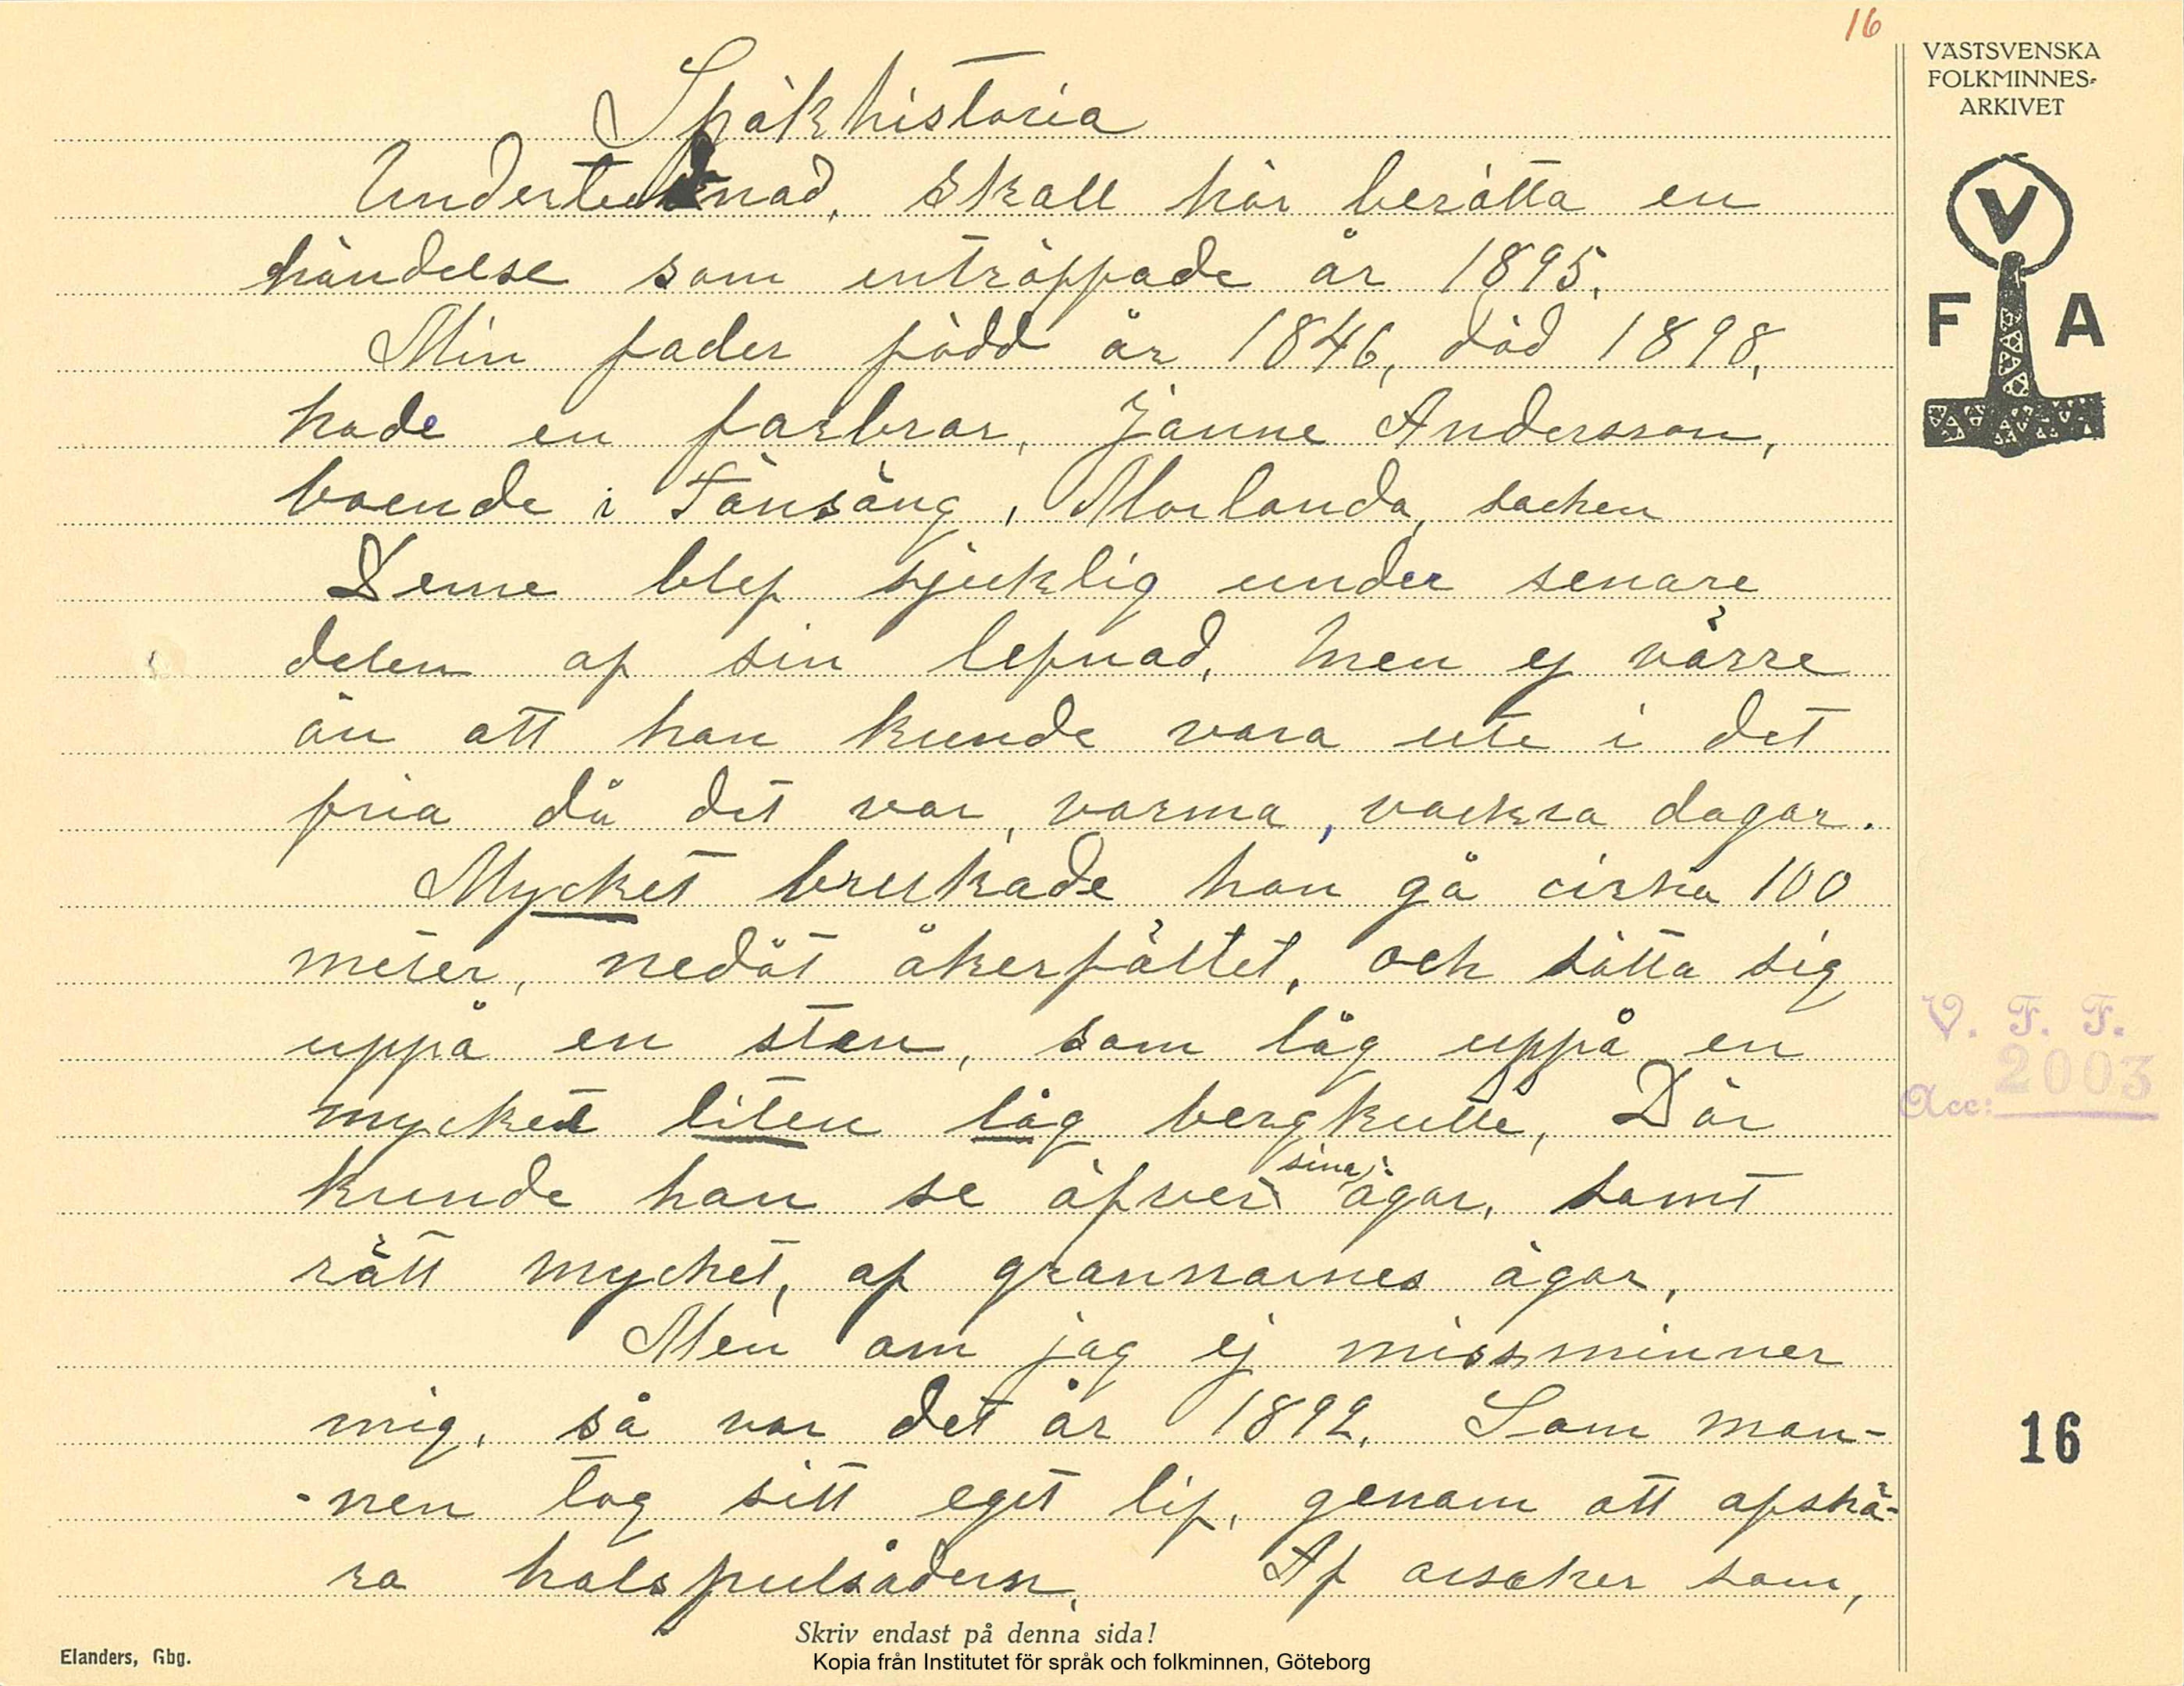 16
VÄSTSVENSKA
FOLKMINNES-
ARKIVET
V
F A
Spökhistoria
Undertecknad, skall här berätta en
händelse som inträffade år 1895.
Min fader född år 1846, död 1898,
hade en farbror, Janne Andersson,
boende i Tånsäng, Morlanda, socken
Denne blef sjuklig under senare
delen af sin lefnad, Men ej värre
än att han kunde vara ute i det
fria då det var, varma, vackra dagar.
Mycket brukade han gå cirka 100
meter, nedåt åkerfältet, och sätta sig
uppå en sten, som låg uppå en
mycket liten låg bergkulle, Där
kunde han se öfver sina ägor, samt
rätt mycket, af grannarnes ägor,
Men om jag ej missminner
mig, så var det år 1892. Som man-
-nen tog sitt eget lif, genom att afskä-
ra halspulsådern, Af orsaker som,
V. F. F.
Acc: 2003
16
Skriv endast på denna sida!
Elanders, Gbg.
Kopia från Institutet för språk och folkminnen, Göteborg